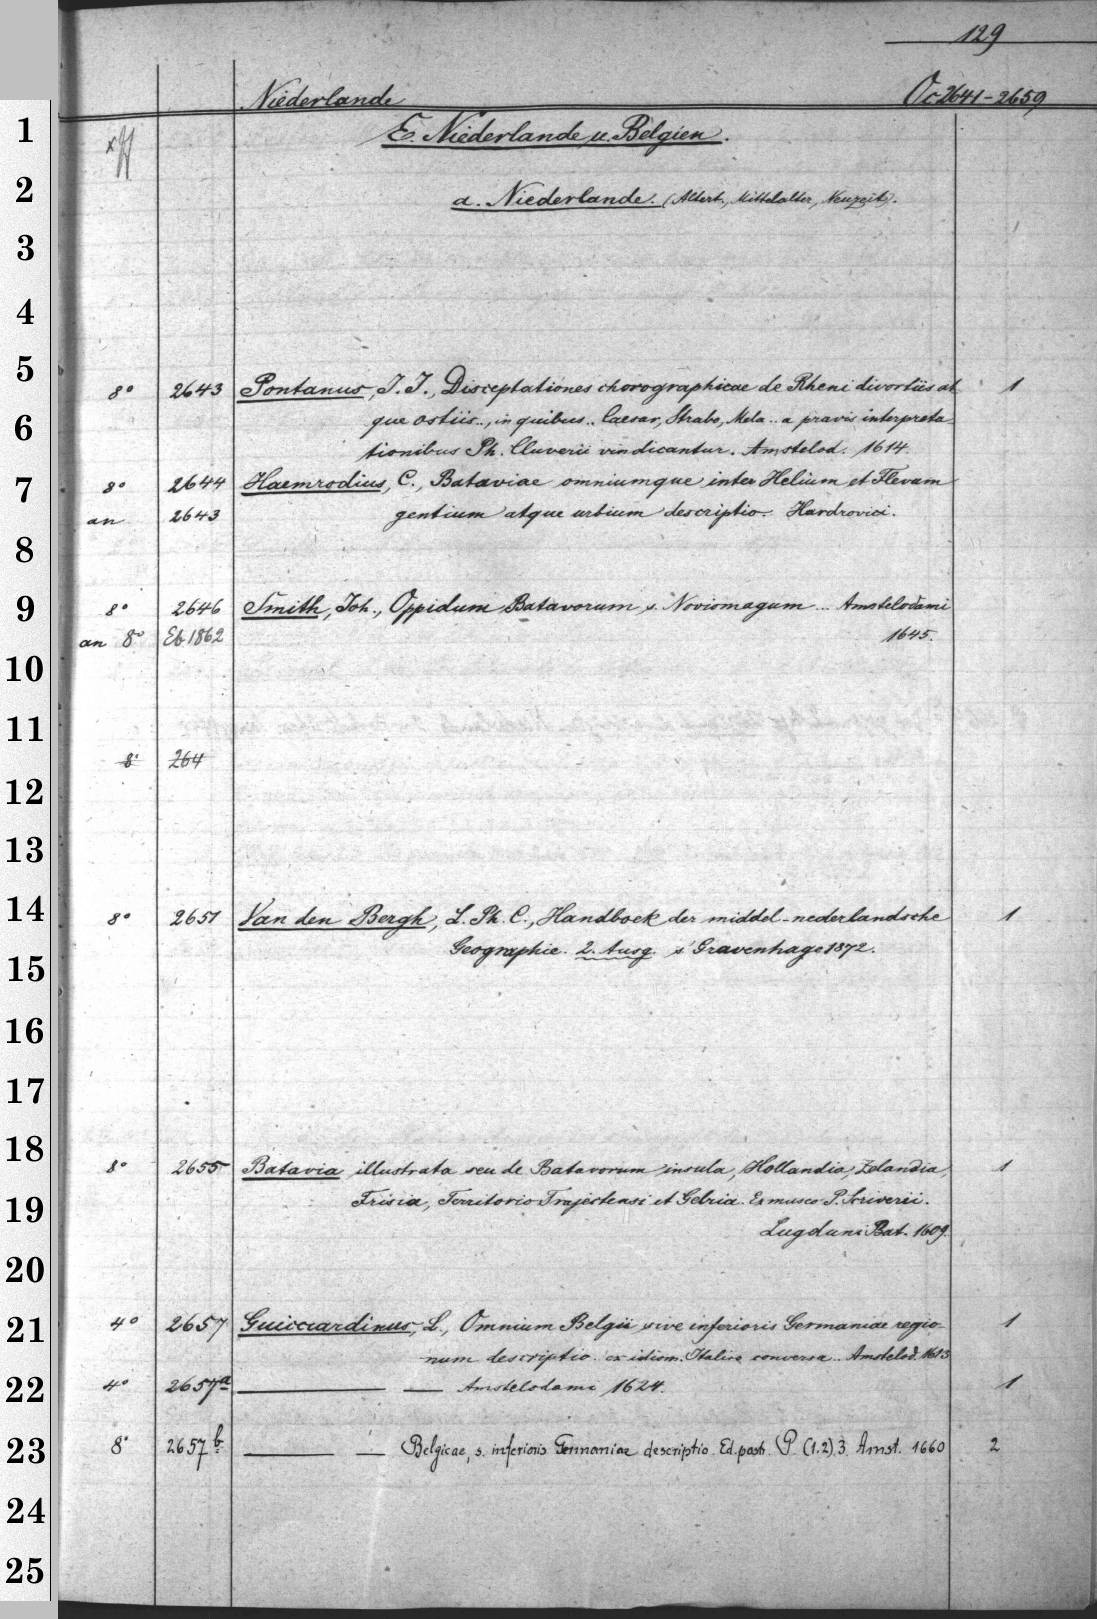 129
Niederlande Oc 2641-2659
1 E. Niederlande u. Belgien.
2 a. Niederlande. (Altert., Mittelalter, Neuzeit).
3
4
5 8° 2643 Pontanus, J. J., Disceptationes chorographicae de Rheni divortiis at- 1
6 que ostiis.., in quibus.. Caesar, Strabo, Mela.. a pravis interpreta-
tionibus Ph. Cluverii vindicantur. Amstelod. 1614.
7 8° 2644 Haemrodius, C., Bataviae omniumque inter Helium et Flevum
an 2643 gentium atque urbium descriptio. Hardrovici.
8
9 8° 2646 Smith, Joh., Oppidum Batavorum s. Noviomagum... Amstelodami
an 8° Eb 1862 1645.
10
11
8° 264
12
13
14 8° 2651 Van den Bergh, L. Ph. C., Handboek der middel-nederlandsche 1
15 Geographie. 2. Ausg. s' Gravenhage 1872.
16
17
18 8° 2655 Batavia illustrata seu de Batavorum insula, Hollandia, Zelandia, 1
19 Frisia, Territorio Trajectensi et Gelria. Ex museo P. Scriverii.
Lugduni Bat. 1609.
20
21 4° 2657 Guicciardinus, L., Omnium Belgii sive inferioris Germaniae regio- 1
num descriptio.. ex idiom. Italico conversa.. Amstelod. 1613
22 4° 2657a — — Amstelodami 1624. 1
23 8° 2657b — — Belgicae, s. inferioris Germaniae descriptio. Ed. postr. P. (1.2) 3. Amst. 1660 2
24
25